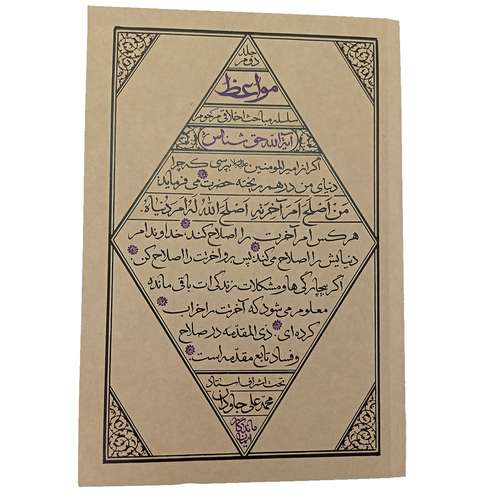 جلد
دوم
مواعظ
سلسله مباحث اخلاقی مرحوم
آیة الله حق شناس
اگر از امیرالمومنین علیه‌السلام بپرسی که چرا
دنیای من در هم ریخته حضرت می فرماید:
مَن اَصْلَحَ اَمرَ آخِرَتِهِ اَصلَحَ اللهُ لَهُ اَمرَ دُنیاهُ.
هر کس امر آخرت را اصلاح کند، خداوند امر
دنیایش را اصلاح می کند، پس رو آخرتت را اصلاح کن.
اگر بیچارگی ها و مشکلات زندگی ات باقی مانده
معلوم می شود که آخرتت را خراب
کرده ای. ذی المقدمه در صلاح
و فساد تابع مقدمه است.
تحت اشراف استاد
محمد علی جاودان